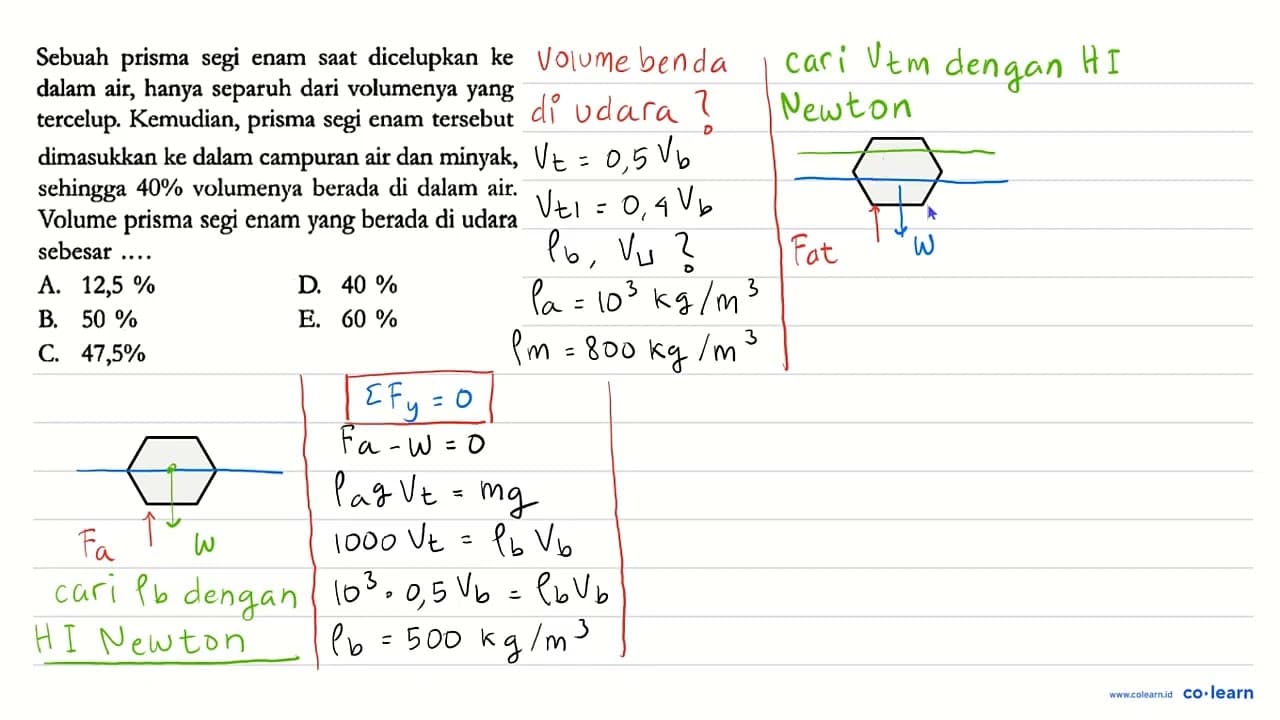 Sebuah prisma segi enam saat dicelupkan ke
dalam air, hanya separuh dari volumenya yang
tercelup. Kemudian, prisma segi enam tersebut
dimasukkan ke dalam campuran air dan minyak,
sehingga 40% volumenya berada di dalam air.
Volume prisma segi enam yang berada di udara
sebesar ....
A. 12,5 %
B. 50 %
C. 47,5%
D. 40 %
E. 60 %
Volume benda
di udara ?
Vt = 0,5 Vb
Vt1 = 0,4 Vb
ρb, Vu ?
ρa = 10³ kg/m³
ρm = 800 kg/m³
cari Vtm dengan HI
Newton
Fat
W
Fa
W
cari ρb dengan
HI Newton
ΣFy = 0
Fa - W = 0
ρag Vt = mg
1000 Vt = ρb Vb
10³ . 0,5 Vb = ρb Vb
ρb = 500 kg/m³
www.colearn.id co·learn